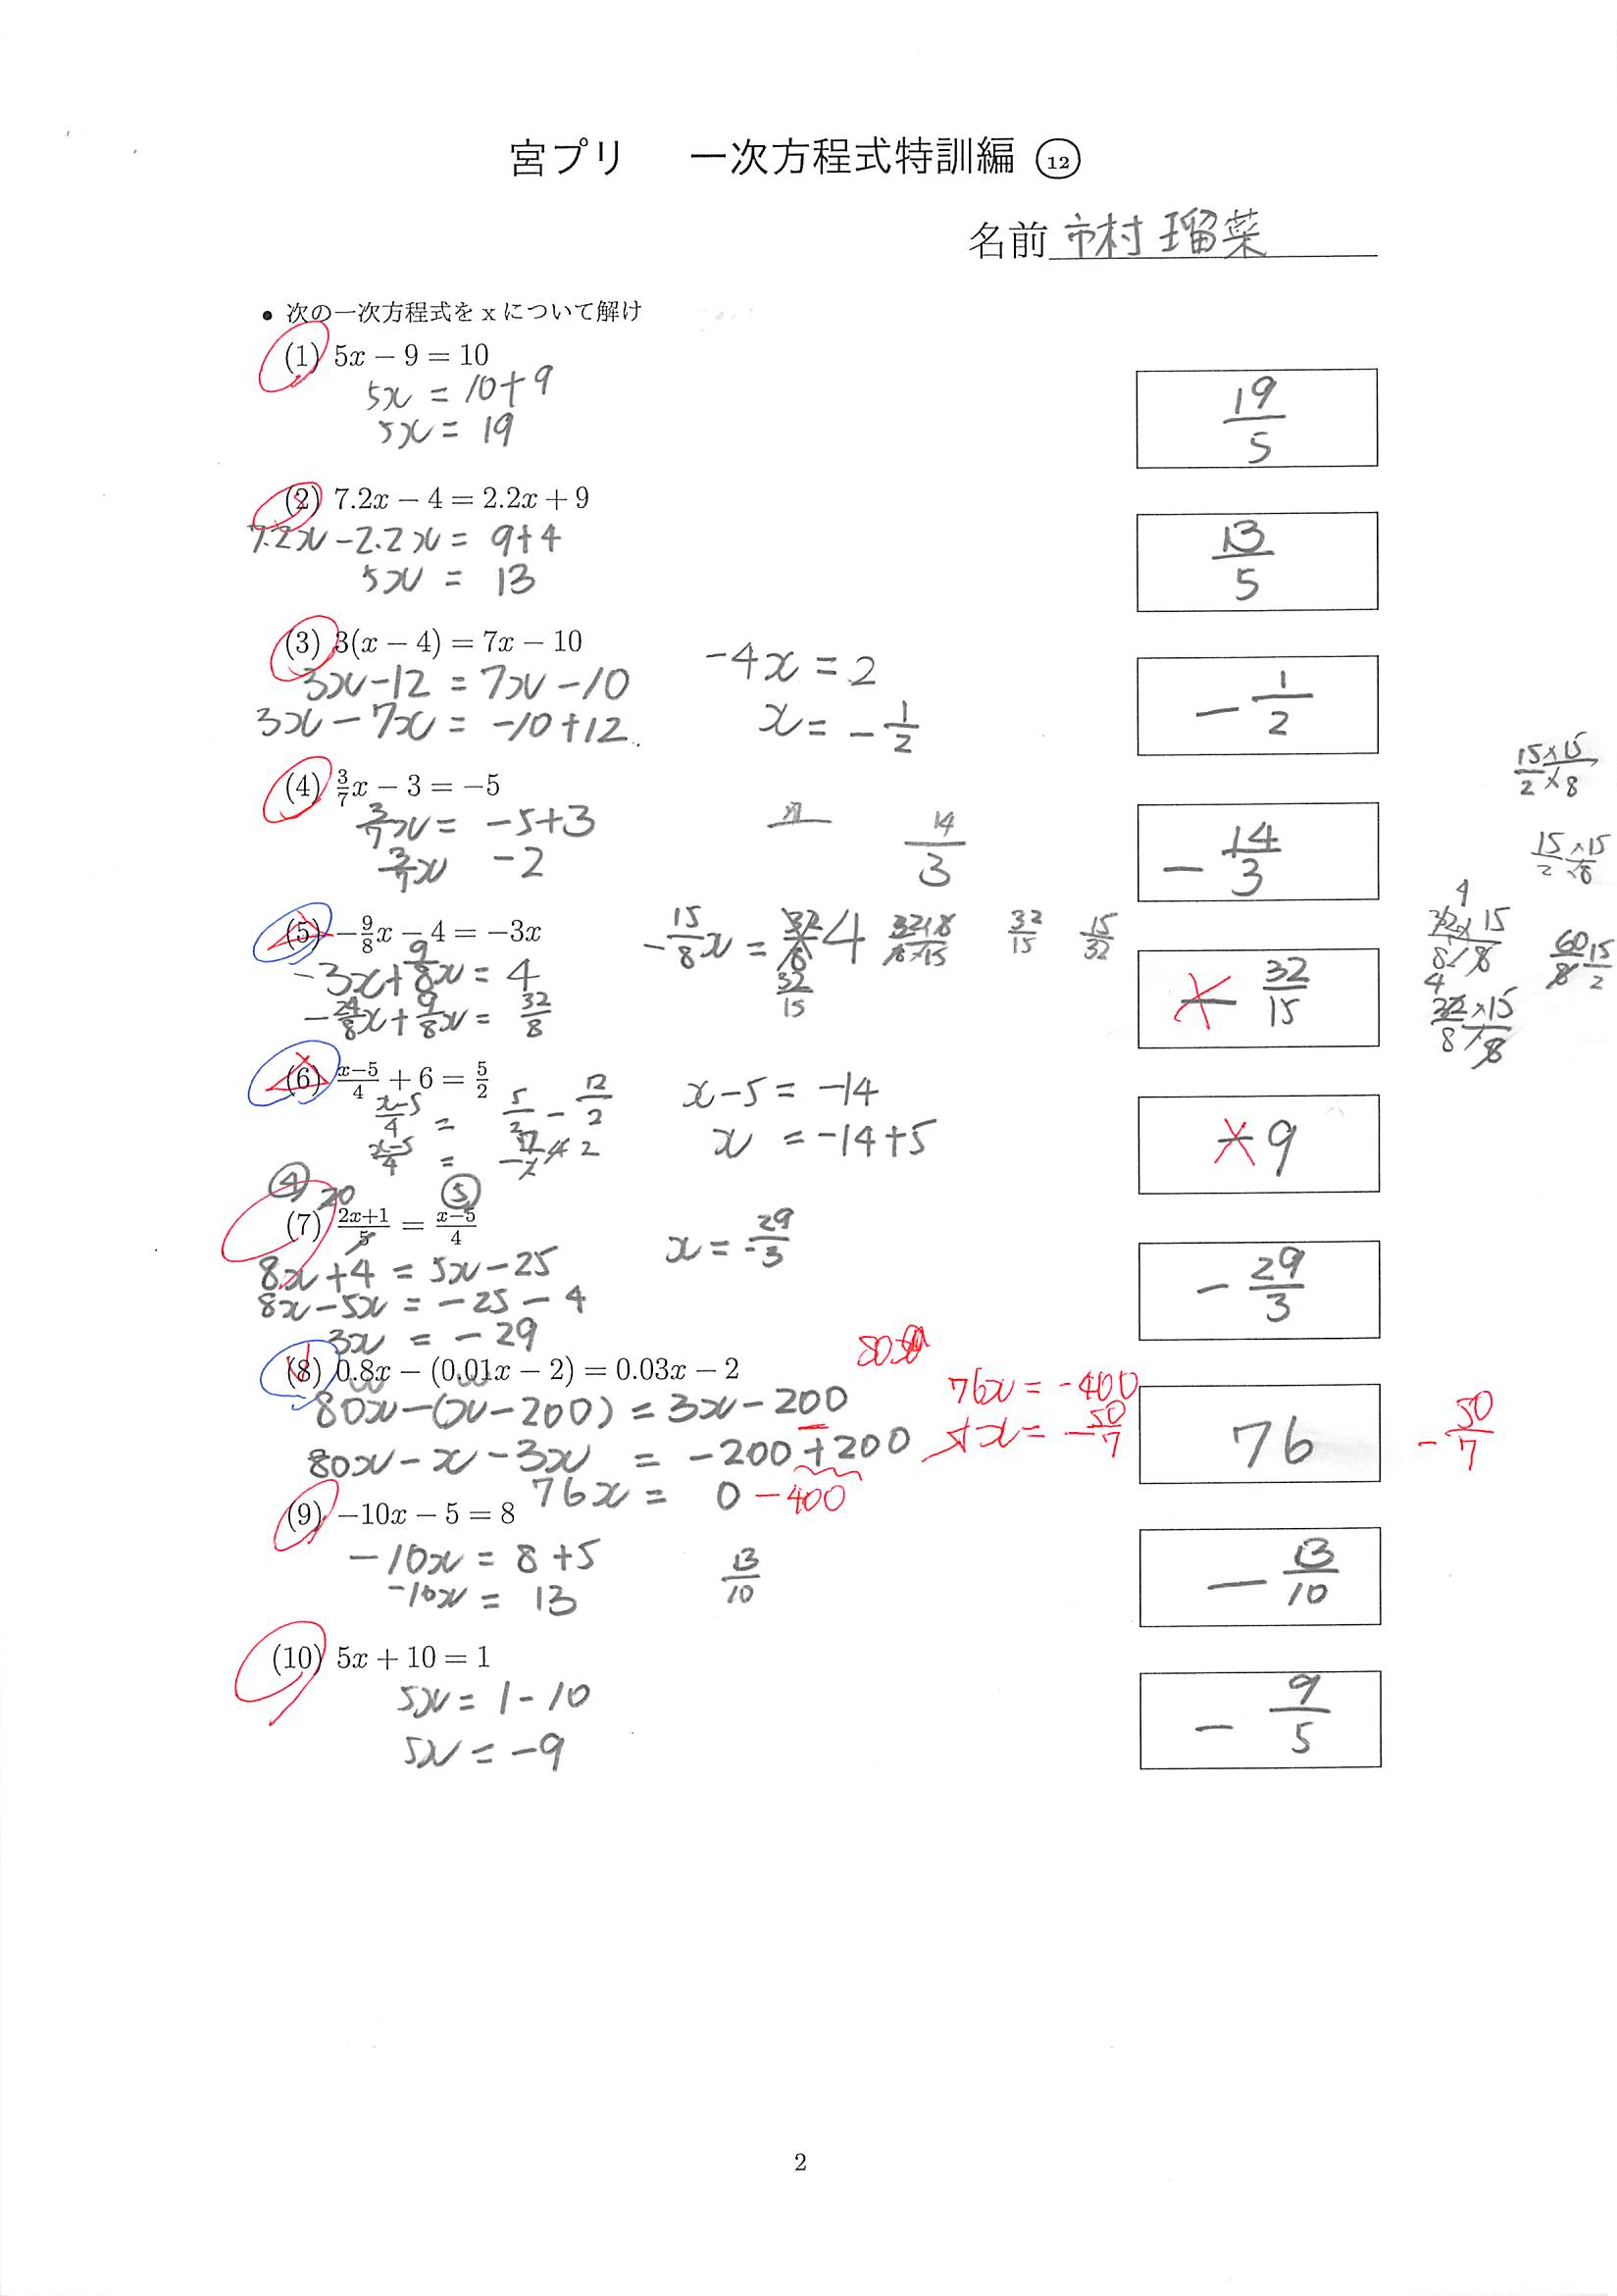 宮プリ 一次方程式特訓編 ⑫
名前 市村 瑠菜
• 次の一次方程式を x について解け
(1) 5x − 9 = 10
5x = 10+9
5x = 19
19/5
(2) 7.2x − 4 = 2.2x + 9
7.2x − 2.2x = 9+4
5x = 13
13/5
(3) 3(x − 4) = 7x − 10
3x − 12 = 7x − 10
3x − 7x = −10+12
−4x = 2
x = −1/2
−1/2
(4) 3/7x − 3 = −5
3/7x = −5+3
3/7x −2
14/3
−14/3
(5) −9/8x − 4 = −3x
−3x + 9/8x = 4
−24/8x + 9/8x = 32/8
−15/8x = 32/8 4
32/15
32/15
15/32
− 32/15
15×15/2×8
15×15/2×8
32×15/8×8
60/8 15/2
32×15/8×8
(6) x−5/4 + 6 = 5/2
x−5/4 = 5/2 − 12/2
x−5/4 =
x−5 = −14
x = −14+5
9
④ 20 ⑤
(7) 2x+1/5 = x−5/4
8x+4 = 5x−25
8x−5x = −25−4
3x = −29
x = 29/−3
−29/3
(8) 0.8x − (0.01x − 2) = 0.03x − 2
80x−(x−200) = 3x−200
80x−x−3x = −200+200
76x = 0 −400
76x = −400
x = −50/7
76
−50/7
(9) −10x − 5 = 8
−10x = 8+5
−10x = 13
13/10
−13/10
(10) 5x + 10 = 1
5x = 1−10
5x = −9
−9/5
2